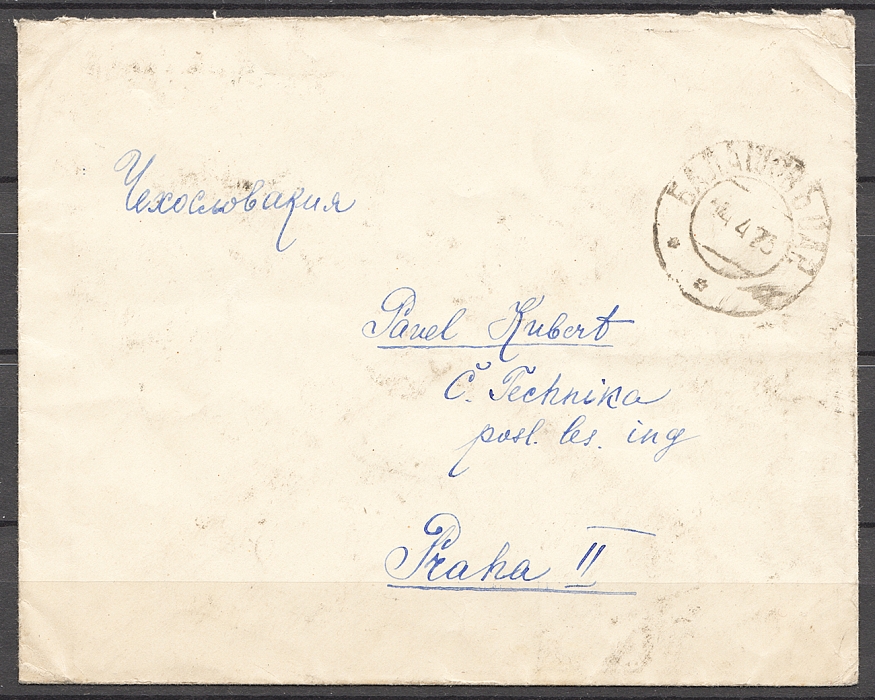 Чехословакия
БАЛАШОВЪ
4 23
Pavel Kubert
Č. Technika
posl. les. ing
Praha II